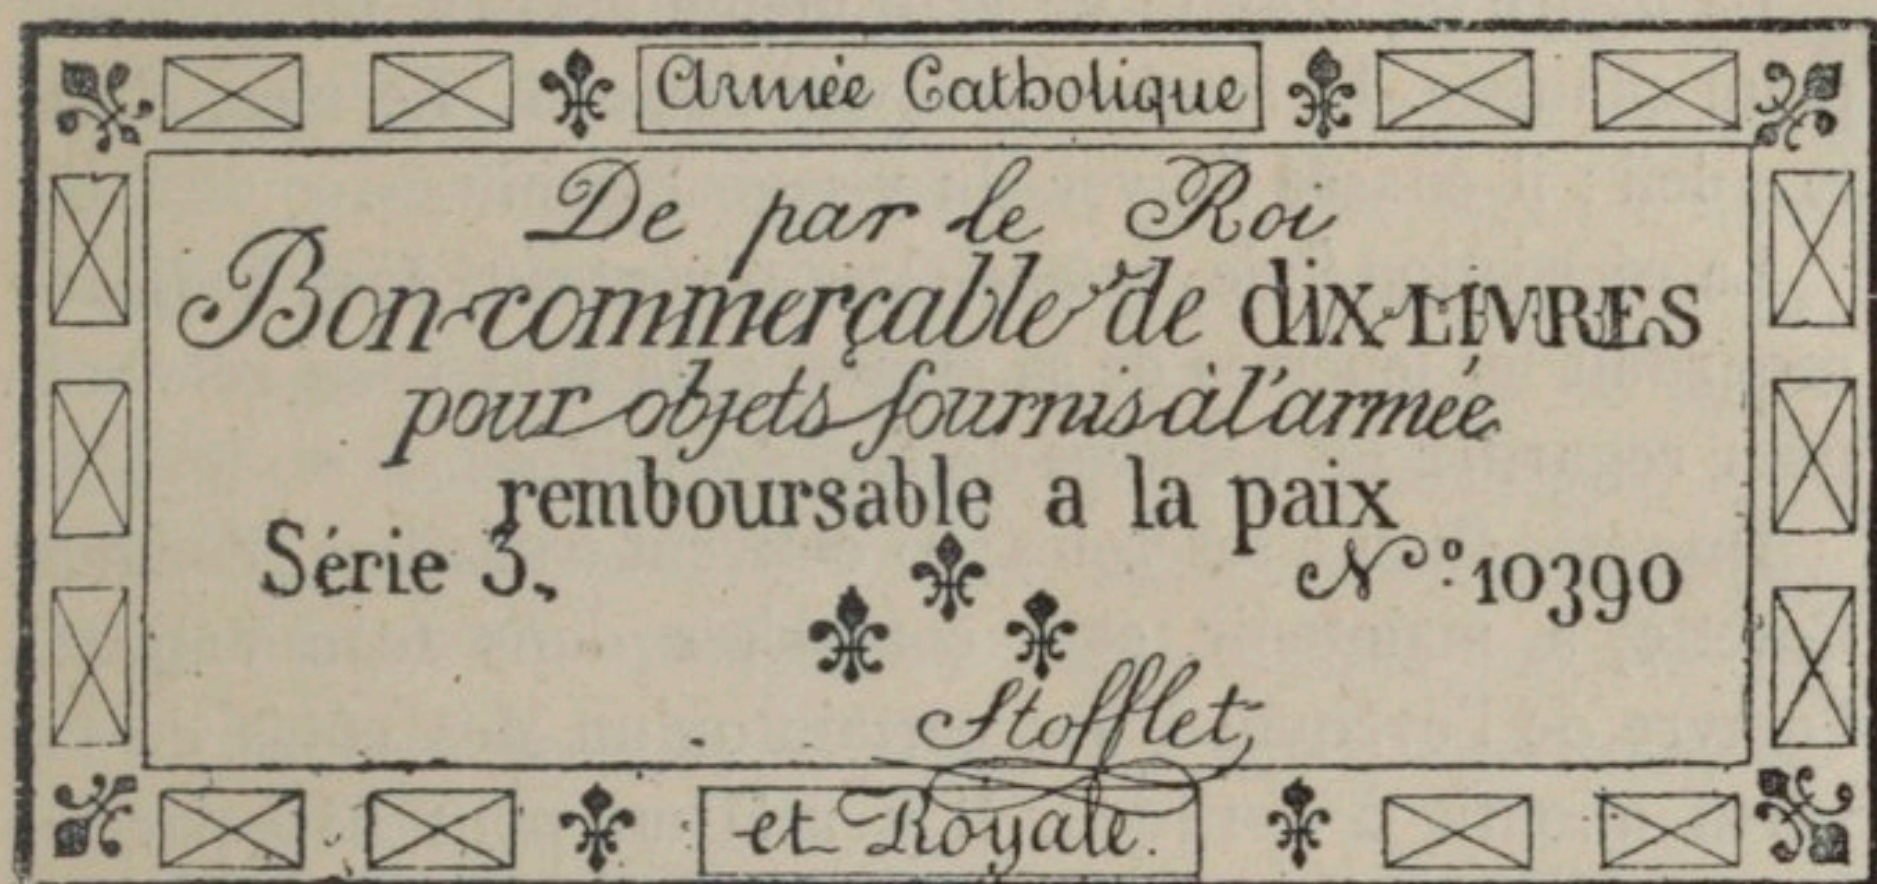 Armée Catholique
De par le Roi
Bon commerçable de dix LIVRES
pour objets fournis à l'armée
remboursable a la paix
Série 3, N.º 10390
Stofflet
et Royale.